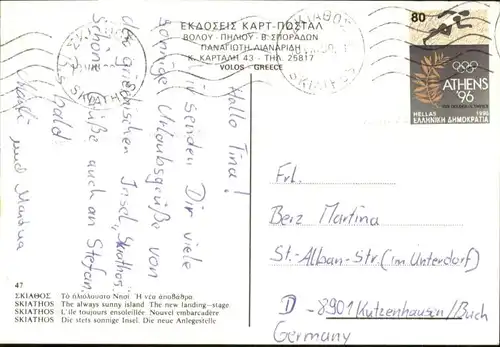 ΕΚΔΟΣΕΙΣ ΚΑΡΤ-ΠΟΣΤΑΛ
ΒΟΛΟΥ - ΠΗΛΙΟΥ - Β. ΣΠΟΡΑΔΩΝ
ΠΑΝΑΓΙΩΤΗ ΛΙΑΝΑΡΙΔΗ
Κ. ΚΑΡΤΑΛΗ 43 - ΤΗΛ. 25817
VOLOS - GREECE
ΣΚΙΑΘΟΣ
SKIATHOS
SKIATHOS
80
ATHENS
'96
HELLAS
ΕΛΛΗΝΙΚΗ ΔΗΜΟΚΡΑΤΙΑ
Hallo Tina!
senden Dir viele
sonnige Urlaubsgrüße von
der griechischen Insel „Skiathos“
Schöne Grüße auch an Stefan.
bald
und Markus
Frl.
Berz Martina
St.-Alban-Str. (im Unterdorf)
D-8901 Kutzenhausen/Buch
Germany
47
ΣΚΙΑΘΟΣ Τὸ ἡλιόλουστο Νησί. Ἡ νέα ἀποβάθρα
SKIATHOS The always sunny island. The new landing-stage
SKIATHOS L'île toujours ensoleillée. Nouvel embarcadère
SKIATHOS Die stets sonnige Insel. Die neue Anlegestelle